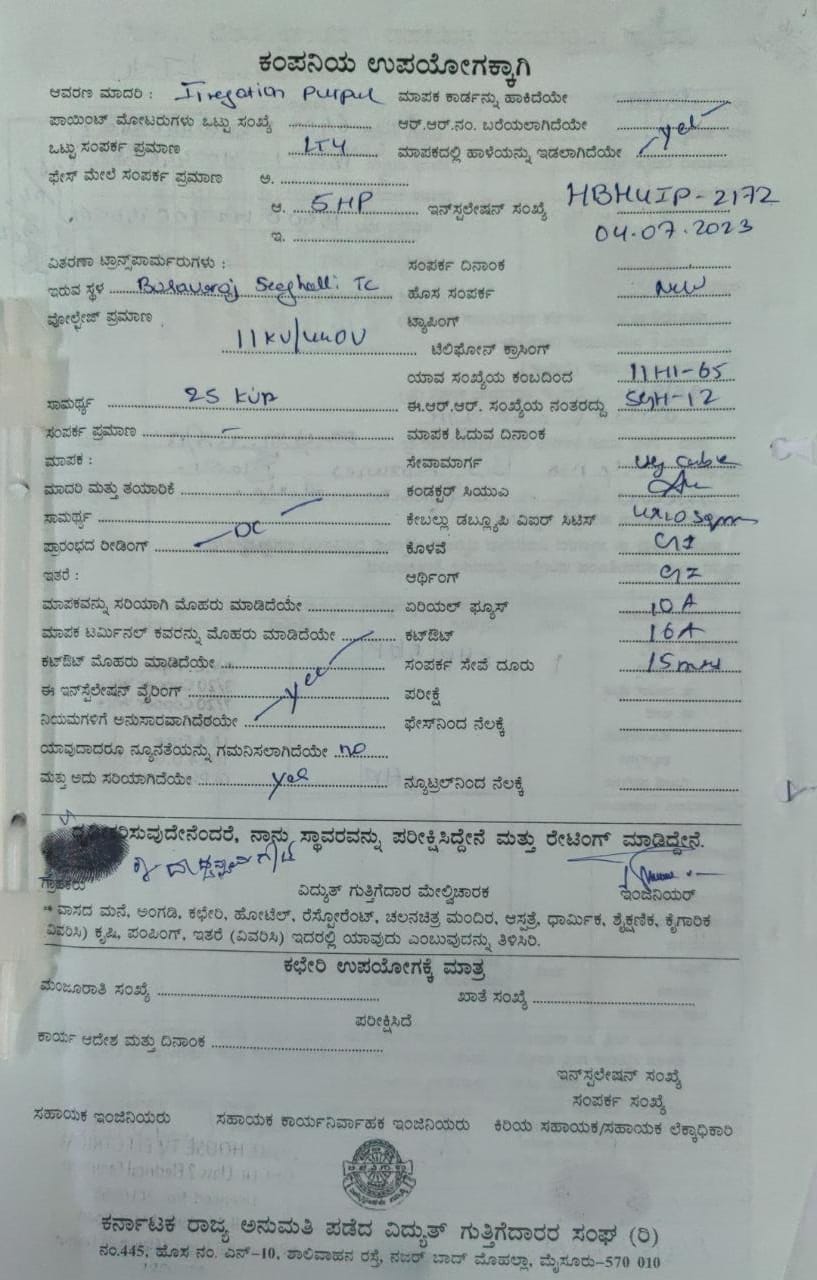 ಕಂಪನಿಯ ಉಪಯೋಗಕ್ಕಾಗಿ
ಆವರಣ ಮಾದರಿ : Irregation ಮಾಪಕ ಕಾರ್ಡನ್ನು ಹಾಕಿದೆಯೇ
ಪಾಯಿಂಟ್ ಮೋಟರುಗಳು ಒಟ್ಟು ಸಂಖ್ಯೆ ಆರ್.ಆರ್.ನಂ. ಬರೆಯಲಾಗಿದೆಯೇ
ಒಟ್ಟು ಸಂಪರ್ಕ ಪ್ರಮಾಣ LT4 ಮಾಪಕದಲ್ಲಿ ಹಾಳೆಯನ್ನು ಇಡಲಾಗಿದೆಯೇ yes
ಫೇಸ್ ಮೇಲೆ ಸಂಪರ್ಕ ಪ್ರಮಾಣ ಅ.
ಆ. 5HP ಇನ್‌ಸ್ಟಲೇಷನ್ ಸಂಖ್ಯೆ HBH4IP-2172
ಇ. 04.07.2023
ವಿತರಣಾ ಟ್ರಾನ್ಸ್‌ಪಾರ್ಮರುಗಳು : ಸಂಪರ್ಕ ದಿನಾಂಕ
ಇರುವ ಸ್ಥಳ TC ಹೊಸ ಸಂಪರ್ಕ New
ವೋಲ್ಟೇಜ್ ಪ್ರಮಾಣ ಟ್ಯಾಪಿಂಗ್
11KV/440V ಟೆಲಿಫೋನ್ ಕ್ರಾಸಿಂಗ್
ಯಾವ ಸಂಖ್ಯೆಯ ಕಂಬದಿಂದ 11H1-65
ಸಾಮರ್ಥ್ಯ 25 KVA ಈ.ಆರ್.ಆರ್. ಸಂಖ್ಯೆಯ ನಂತರದ್ದು SGH-12
ಸಂಪರ್ಕ ಪ್ರಮಾಣ – ಮಾಪಕ ಓದುವ ದಿನಾಂಕ
ಮಾಪಕ : ಸೇವಾಮಾರ್ಗ ug cable
ಮಾದರಿ ಮತ್ತು ತಯಾರಿಕೆ ಕಂಡಕ್ಟರ್ ಸಿಯುಎ
ಸಾಮರ್ಥ್ಯ ಕೇಬಲ್ಲು ಡಬ್ಲ್ಯೂಪಿ ವಿಐಆರ್ ಸಿಟಿಸ್ 4x10 sqmm
ಪ್ರಾರಂಭದ ರೀಡಿಂಗ್ DC ಕೊಳವೆ GI
ಇತರೆ : ಆರ್ಥಿಂಗ್ GI
ಮಾಪಕವನ್ನು ಸರಿಯಾಗಿ ಮೊಹರು ಮಾಡಿದೆಯೇ ಏರಿಯಲ್ ಫ್ಯೂಸ್ 10A
ಮಾಪಕ ಟರ್ಮಿನಲ್ ಕವರನ್ನು ಮೊಹರು ಮಾಡಿದೆಯೇ ಕಟ್‌ಔಟ್ 16A
ಕಟ್‌ಔಟ್ ಮೊಹರು ಮಾಡಿದೆಯೇ ಸಂಪರ್ಕ ಸೇವೆ ದೂರು 15
ಈ ಇನ್‌ಸ್ಟೆಲೇಷನ್ ವೈರಿಂಗ್ yes ಪರೀಕ್ಷೆ
ನಿಯಮಗಳಿಗೆ ಅನುಸಾರವಾಗಿದೆಯೇ ಫೇಸ್‌ನಿಂದ ನೆಲಕ್ಕೆ
ಯಾವುದಾದರೂ ನ್ಯೂನತೆಯನ್ನು ಗಮನಿಸಲಾಗಿದೆಯೇ no
ಮತ್ತು ಅದು ಸರಿಯಾಗಿದೆಯೇ yes ನ್ಯೂಟ್ರಲ್‌ನಿಂದ ನೆಲಕ್ಕೆ
ನಾನು ಸ್ಥಾವರವನ್ನು ಪರೀಕ್ಷಿಸಿದ್ದೇನೆ ಮತ್ತು ರೇಟಿಂಗ್ ಮಾಡಿದ್ದೇನೆ.
ಗ್ರಾಹಕರು ವಿದ್ಯುತ್ ಗುತ್ತಿಗೆದಾರ ಮೇಲ್ವಿಚಾರಕ ಇಂಜಿನಿಯರ್
** ವಾಸದ ಮನೆ, ಅಂಗಡಿ, ಕಛೇರಿ, ಹೋಟೆಲ್, ರೆಸ್ಟೋರೆಂಟ್, ಚಲನಚಿತ್ರ ಮಂದಿರ, ಆಸ್ಪತ್ರೆ, ಧಾರ್ಮಿಕ, ಶೈಕ್ಷಣಿಕ, ಕೈಗಾರಿಕ
ವಿವರಿಸಿ) ಕೃಷಿ, ಪಂಪಿಂಗ್, ಇತರೆ (ವಿವರಿಸಿ) ಇದರಲ್ಲಿ ಯಾವುದು ಎಂಬುವುದನ್ನು ತಿಳಿಸಿರಿ.
ಕಛೇರಿ ಉಪಯೋಗಕ್ಕೆ ಮಾತ್ರ
ಮಂಜೂರಾತಿ ಸಂಖ್ಯೆ ಖಾತೆ ಸಂಖ್ಯೆ
ಪರೀಕ್ಷಿಸಿದೆ
ಕಾರ್ಯ ಆದೇಶ ಮತ್ತು ದಿನಾಂಕ
ಇನ್‌ಸ್ಪಲೇಷನ್ ಸಂಖ್ಯೆ
ಸಂಪರ್ಕ ಸಂಖ್ಯೆ
ಸಹಾಯಕ ಇಂಜಿನಿಯರು ಸಹಾಯಕ ಕಾರ್ಯನಿರ್ವಾಹಕ ಇಂಜಿನಿಯರು ಕಿರಿಯ ಸಹಾಯಕ/ಸಹಾಯಕ ಲೆಕ್ಕಾಧಿಕಾರಿ
ಕರ್ನಾಟಕ ರಾಜ್ಯ ಅನುಮತಿ ಪಡೆದ ವಿದ್ಯುತ್ ಗುತ್ತಿಗೆದಾರರ ಸಂಘ (ರಿ)
ನಂ.445, ಹೊಸ ನಂ. ಎನ್-10, ಶಾಲಿವಾಹನ ರಸ್ತೆ, ನಜರ್ ಬಾದ್ ಮೊಹಲ್ಲಾ, ಮೈಸೂರು-570 010